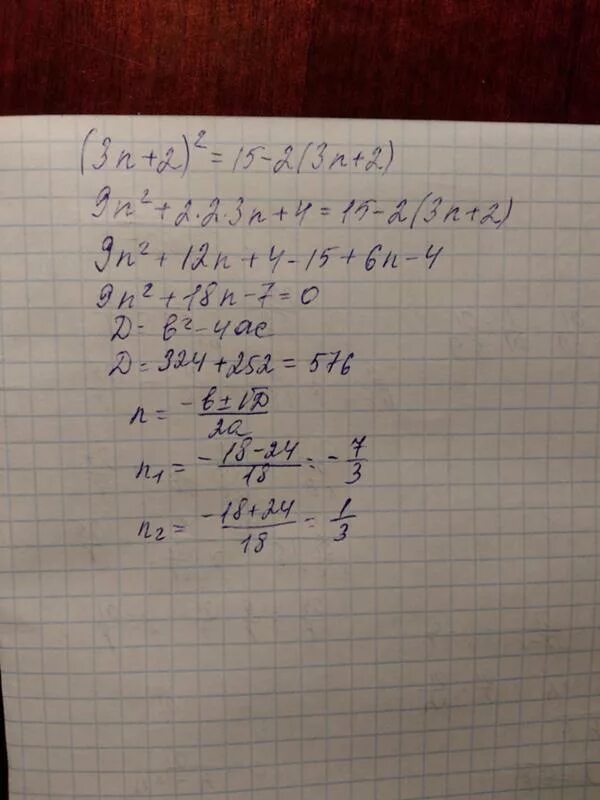 (3n+2)² = 15-2(3n+2)
9n² + 2·2·3n + 4 = 15-2(3n+2)
9n² + 12n + 4 - 15 + 6n - 4
9n² + 18n - 7 = 0
D = b² - 4ac
D = 324 + 252 = 576
n = -b±√D / 2a
n₁ = -18-24 / 18 = -7/3
n₂ = -18+24 / 18 = 1/3